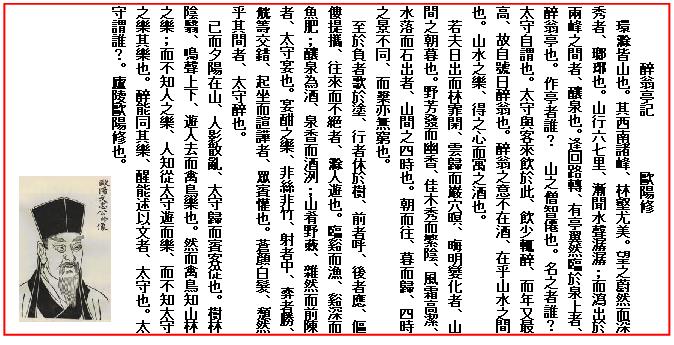 醉翁亭記　　　歐陽修
環滁皆山也。其西南諸峰、林壑尤美。望之蔚然而深
秀者、瑯琊也。山行六七里、漸聞水聲潺潺；而瀉出於
兩峰之間者、釀泉也。逢回路轉、有亭翼然臨於泉上者、
醉翁亭也。作亭者誰？　山之僧智僊也。名之者誰？
太守自謂也。太守與客來飲於此、飲少輒醉、而年又最
高、故自號曰醉翁也。醉翁之意不在酒、在乎山水之間
也。山水之樂、得之心而寓之酒也。
若夫日出而林霏開、雲歸而巖穴暝、晦明變化者、山
間之朝暮也。野芳發而幽香、佳木秀而繁陰、風霜高潔、
水落而石出者、山間之四時也。朝而往、暮而歸、四時
之景不同、而樂亦無窮也。
至於負者歌於塗、行者休於樹、前者呼、後者應、傴
僂提攜、往來而不絕者、滁人遊也。臨谿而漁、谿深而
魚肥；釀泉為酒、泉香而酒洌；山肴野蔌、雜然而前陳
者、太守宴也。宴酣之樂、非絲非竹、射者中、奕者勝、
觥籌交錯、起坐而諠譁者、眾賓懽也。蒼顏白髮、頹然
乎其間者、太守醉也。
已而夕陽在山、人影散亂、太守歸而賓客從也。樹林
陰翳、鳴聲上下、遊人去而禽鳥樂也。然而禽鳥知山林
之樂；而不知人之樂、人知從太守遊而樂、而不知太守
之樂其樂也。醉能同其樂、醒能述以文者、太守也。太
守謂誰？。廬陵歐陽修也。
歐陽文忠公小像